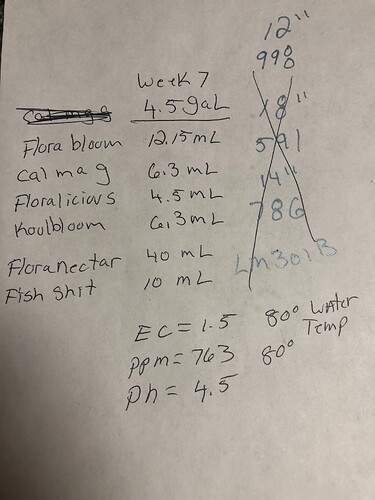 Week 7
4.5gal
Cal mag
Flora bloom 12.15mL
cal mag 6.3 mL
Floralicious 4.5 mL
Koolbloom 6.3mL
Floranectar 40 mL
Fish Shit 10 mL
EC = 1.5 80° Water Temp
ppm = 763 80°
Ph = 4.5
12"
990
18"
591
14"
786
Lm301B